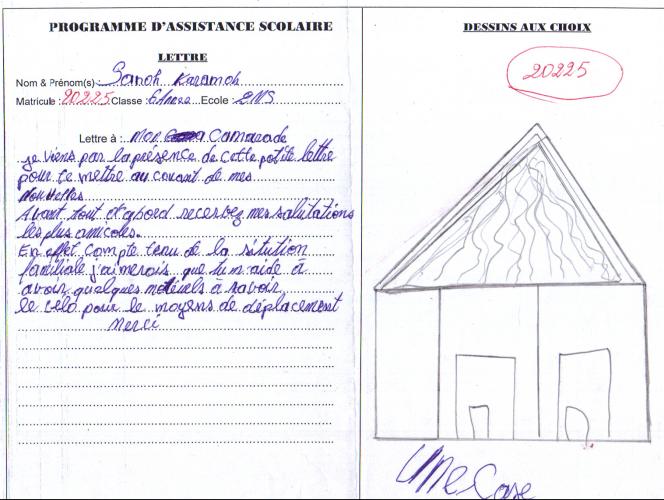 PROGRAMME D'ASSISTANCE SCOLAIRE
LETTRE
Nom & Prénom(s) : Sanoh Karamoh
Matricule : 20225 Classe : 6Année Ecole : ENS
Lettre à : Mon Camarade
je viens par la présence de cette petite lettre
pour te mettre au courant de mes
Nouvelles
Avant tout d'abord recevez mes salutations
les plus amicoles.
En effet compte tenu de la sitution
familiale j'aimerais que tu m'aide à
avoir quelques matériels à savoir
le velo pour le moyens de déplacement
Merci
DESSINS AUX CHOIX
20225
UNe Case